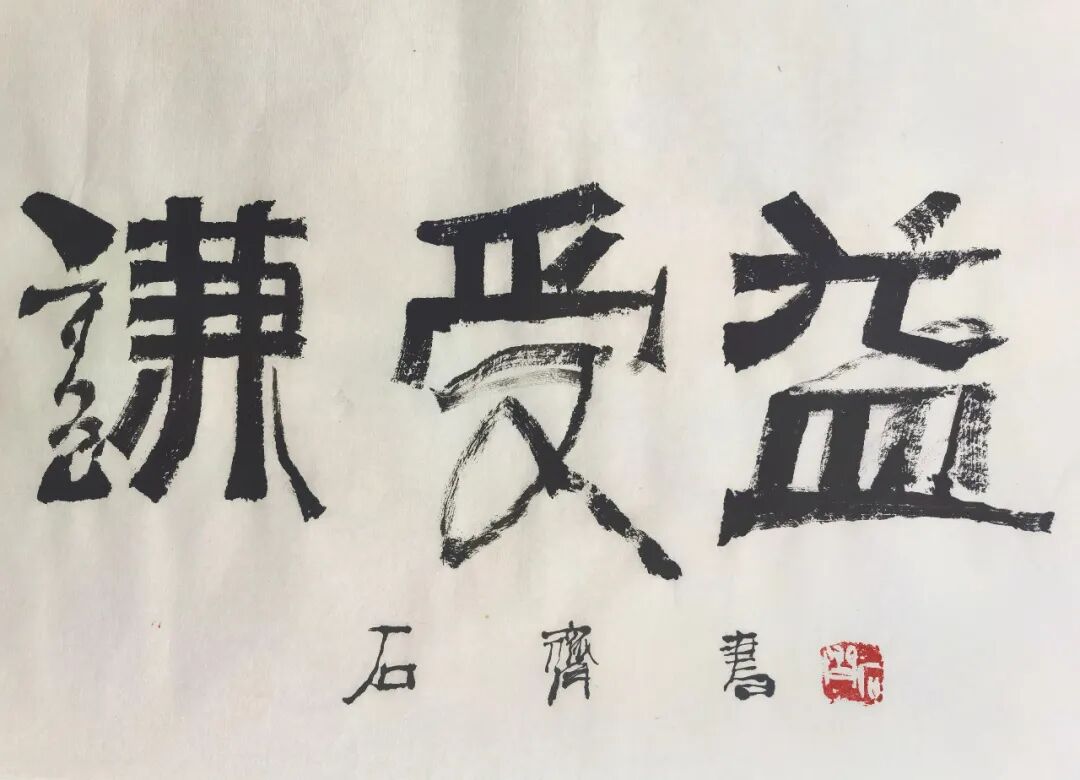 謙受益
石齊書